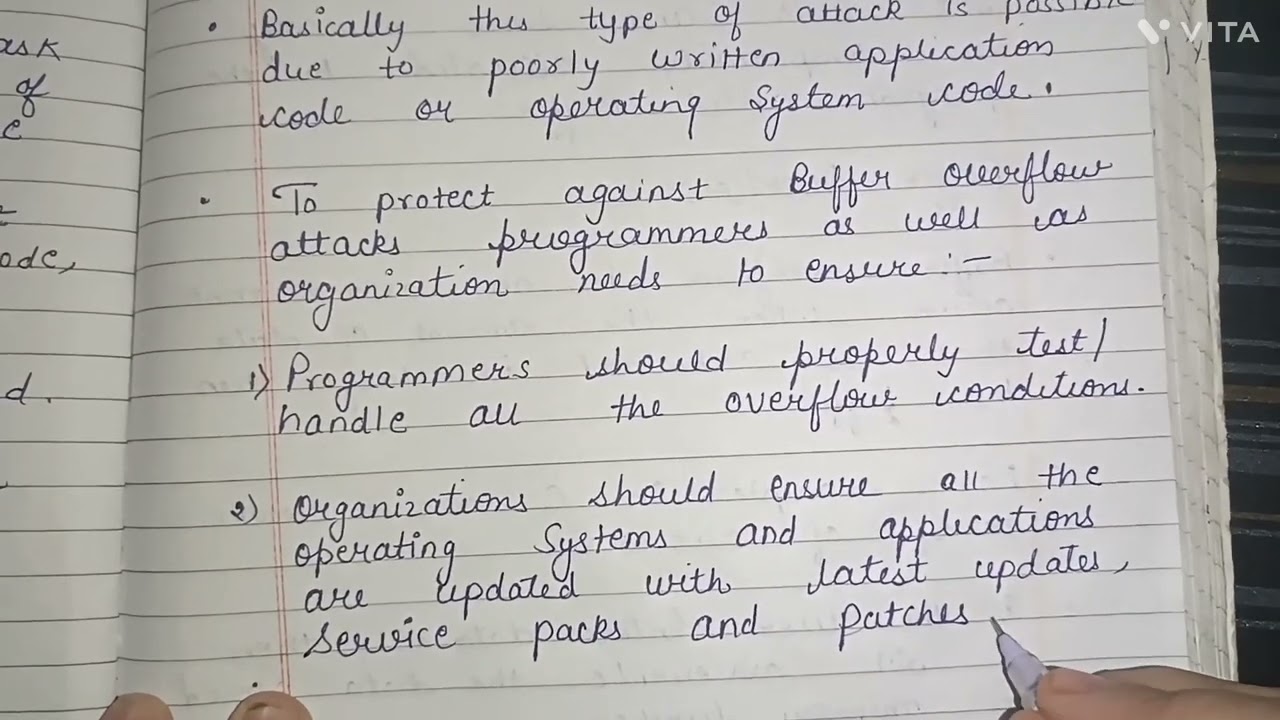 ask
of
e
ode,
d.
• Basically this type of attack is possible
due to poorly written application
code or operating System code.
• To protect against Buffer overflow
attacks programmers as well as
organization needs to ensure :-
1) Programmers should properly test/
handle all the overflow conditions.
2) Organizations should ensure all the
operating Systems and applications
are updated with latest updates,
Service packs and patches
VITA